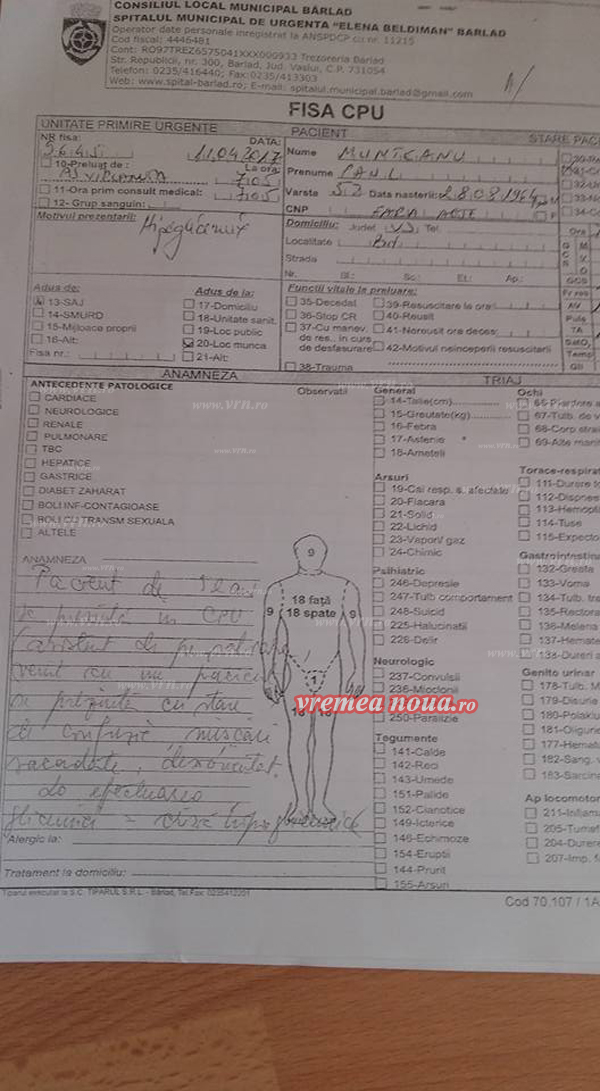 CONSILIUL LOCAL MUNICIPAL BÂRLAD
SPITALUL MUNICIPAL DE URGENTA "ELENA BELDIMAN" BARLAD
Operator date personale inregistrat la ANSPDCP cu nr. 11215
Cod fiscal: 4446481
Cont: RO97TREZ6575041XXX000933 Trezoreria Barlad
Str. Republicii, nr. 300, Barlad, Jud. Vaslui, C.P. 731054
Telefon: 0235/416440; Fax:0235/413303
Web: www.spital-barlad.ro; E-mail: spitalul.municipal.barlad@gmail.com
FISA CPU
UNITATE PRIMIRE URGENTE
PACIENT
STARE PACI
NR fisa: DATA:
11.04 2017
10-Preluat de : La ora:
705
11-Ora prim consult medical: 705
12- Grup sanguin:
Nume MUNTEANU
Prenume PAUL
Varsta 52 Data nasterii: 28.08 1964
CNP FARA ACTE F
Motivul prezentarii: Hipoglicemie
Domiciliu: Judet VS Tel.
Localitate
Strada
Nr. Bl.: Sc.: Et.: Ap.:
Ora
Adus de:
13-SAJ
14-SMURD
15-Mijloace proprii
16-Alt:
Fisa nr.:
Adus de la:
17-Domiciliu
18-Unitate sanit.
19-Loc public
20-Loc munca
21-Alt:
Functii vitale la preluare:
35-Decedat
36-Stop CR
37-Cu manev.
de res., in curs
de desfasurare
38-Trauma
39-Resuscitare la ora:
40-Reusit
41-Nereusit ora deces:
42-Motivul neinceperii resuscitarii
GCS
Puls
TA
SatO2
Temp
ANAMNEZA
TRIAJ
ANTECEDENTE PATOLOGICE Observatii
CARDIACE
NEUROLOGICE
RENALE
PULMONARE
TBC
HEPATICE
GASTRICE
DIABET ZAHARAT
BOLI INF-CONTAGIOASE
BOLI CU TRANSM SEXUALA
ALTELE
ANAMNEZA
Pacient de 52 ani
se prezintă în CPU
venit cu un pacient
se prezinta cu stare
de confuzie, mișcări
sacadate, dezorientat.
La efectuarea
glicemiei = criză hipoglicemică
9
18 față
18 spate
9
9
1
18
18
Alergic la:
Tratament la domiciliu:
General
14-Talie(cm)
15-Greutate(kg)
16-Febra
17-Astenie
18-Ameteli
Arsuri
19-Cai resp. s. afectate
20-Flacara
21-Solid
22-Lichid
23-Vapori/ gaz
24-Chimic
Psihiatric
246-Depresie
247-Tulb comportament
248-Suicid
225-Halucinatii
226-Delir
Neurologic
237-Convulsii
236-Mioclonii
250-Paralizie
Tegumente
141-Calde
142-Reci
143-Umede
151-Palide
152-Cianotice
149-Icterice
146-Echimoze
154-Eruptii
144-Prurit
155-Arsuri
Ochi
66-Pierdere a
67-Tulb. de v
68-Corp strai
69-Alte manif
Torace-respirat
111-Durere to
112-Dispnee
113-Hemopti
114-Tuse
115-Expecto
Gastrointestina
132-Greata
133-Voma
134-Tulb. tra
135-Rectora
136-Melena
137-Hemate
133-Dureri a
Genito urinar
178-Tulb. M
179-Disurie
180-Polakiu
181-Oligurie
177-Hematu
182-Sang. v
183-Sarcina
Ap locomotor
211-Inflama
205-Tumefa
204-Durere
207-Imp. f
Tiparul executat la S.C. TIPARUL S.R.L. - Bârlad, Tel.Fax: 0235412201
Cod 70.107 / 1A
vremea noua.ro
www.VTH.ro